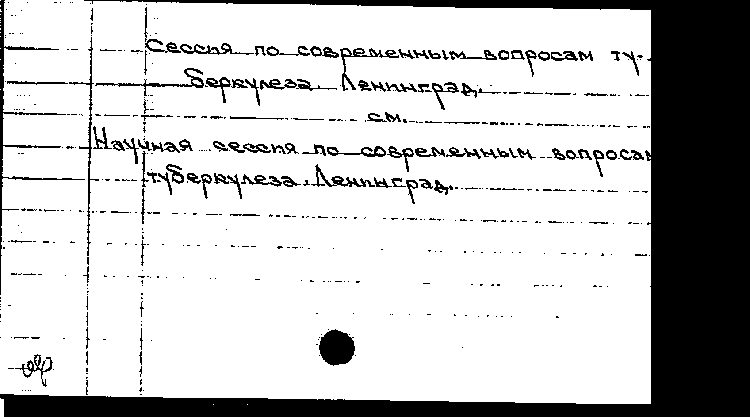 Сессия по современным вопросам ту-
беркулеза. Ленинград.
см.
Научная сессия по современным вопросам
туберкулеза. Ленинград.